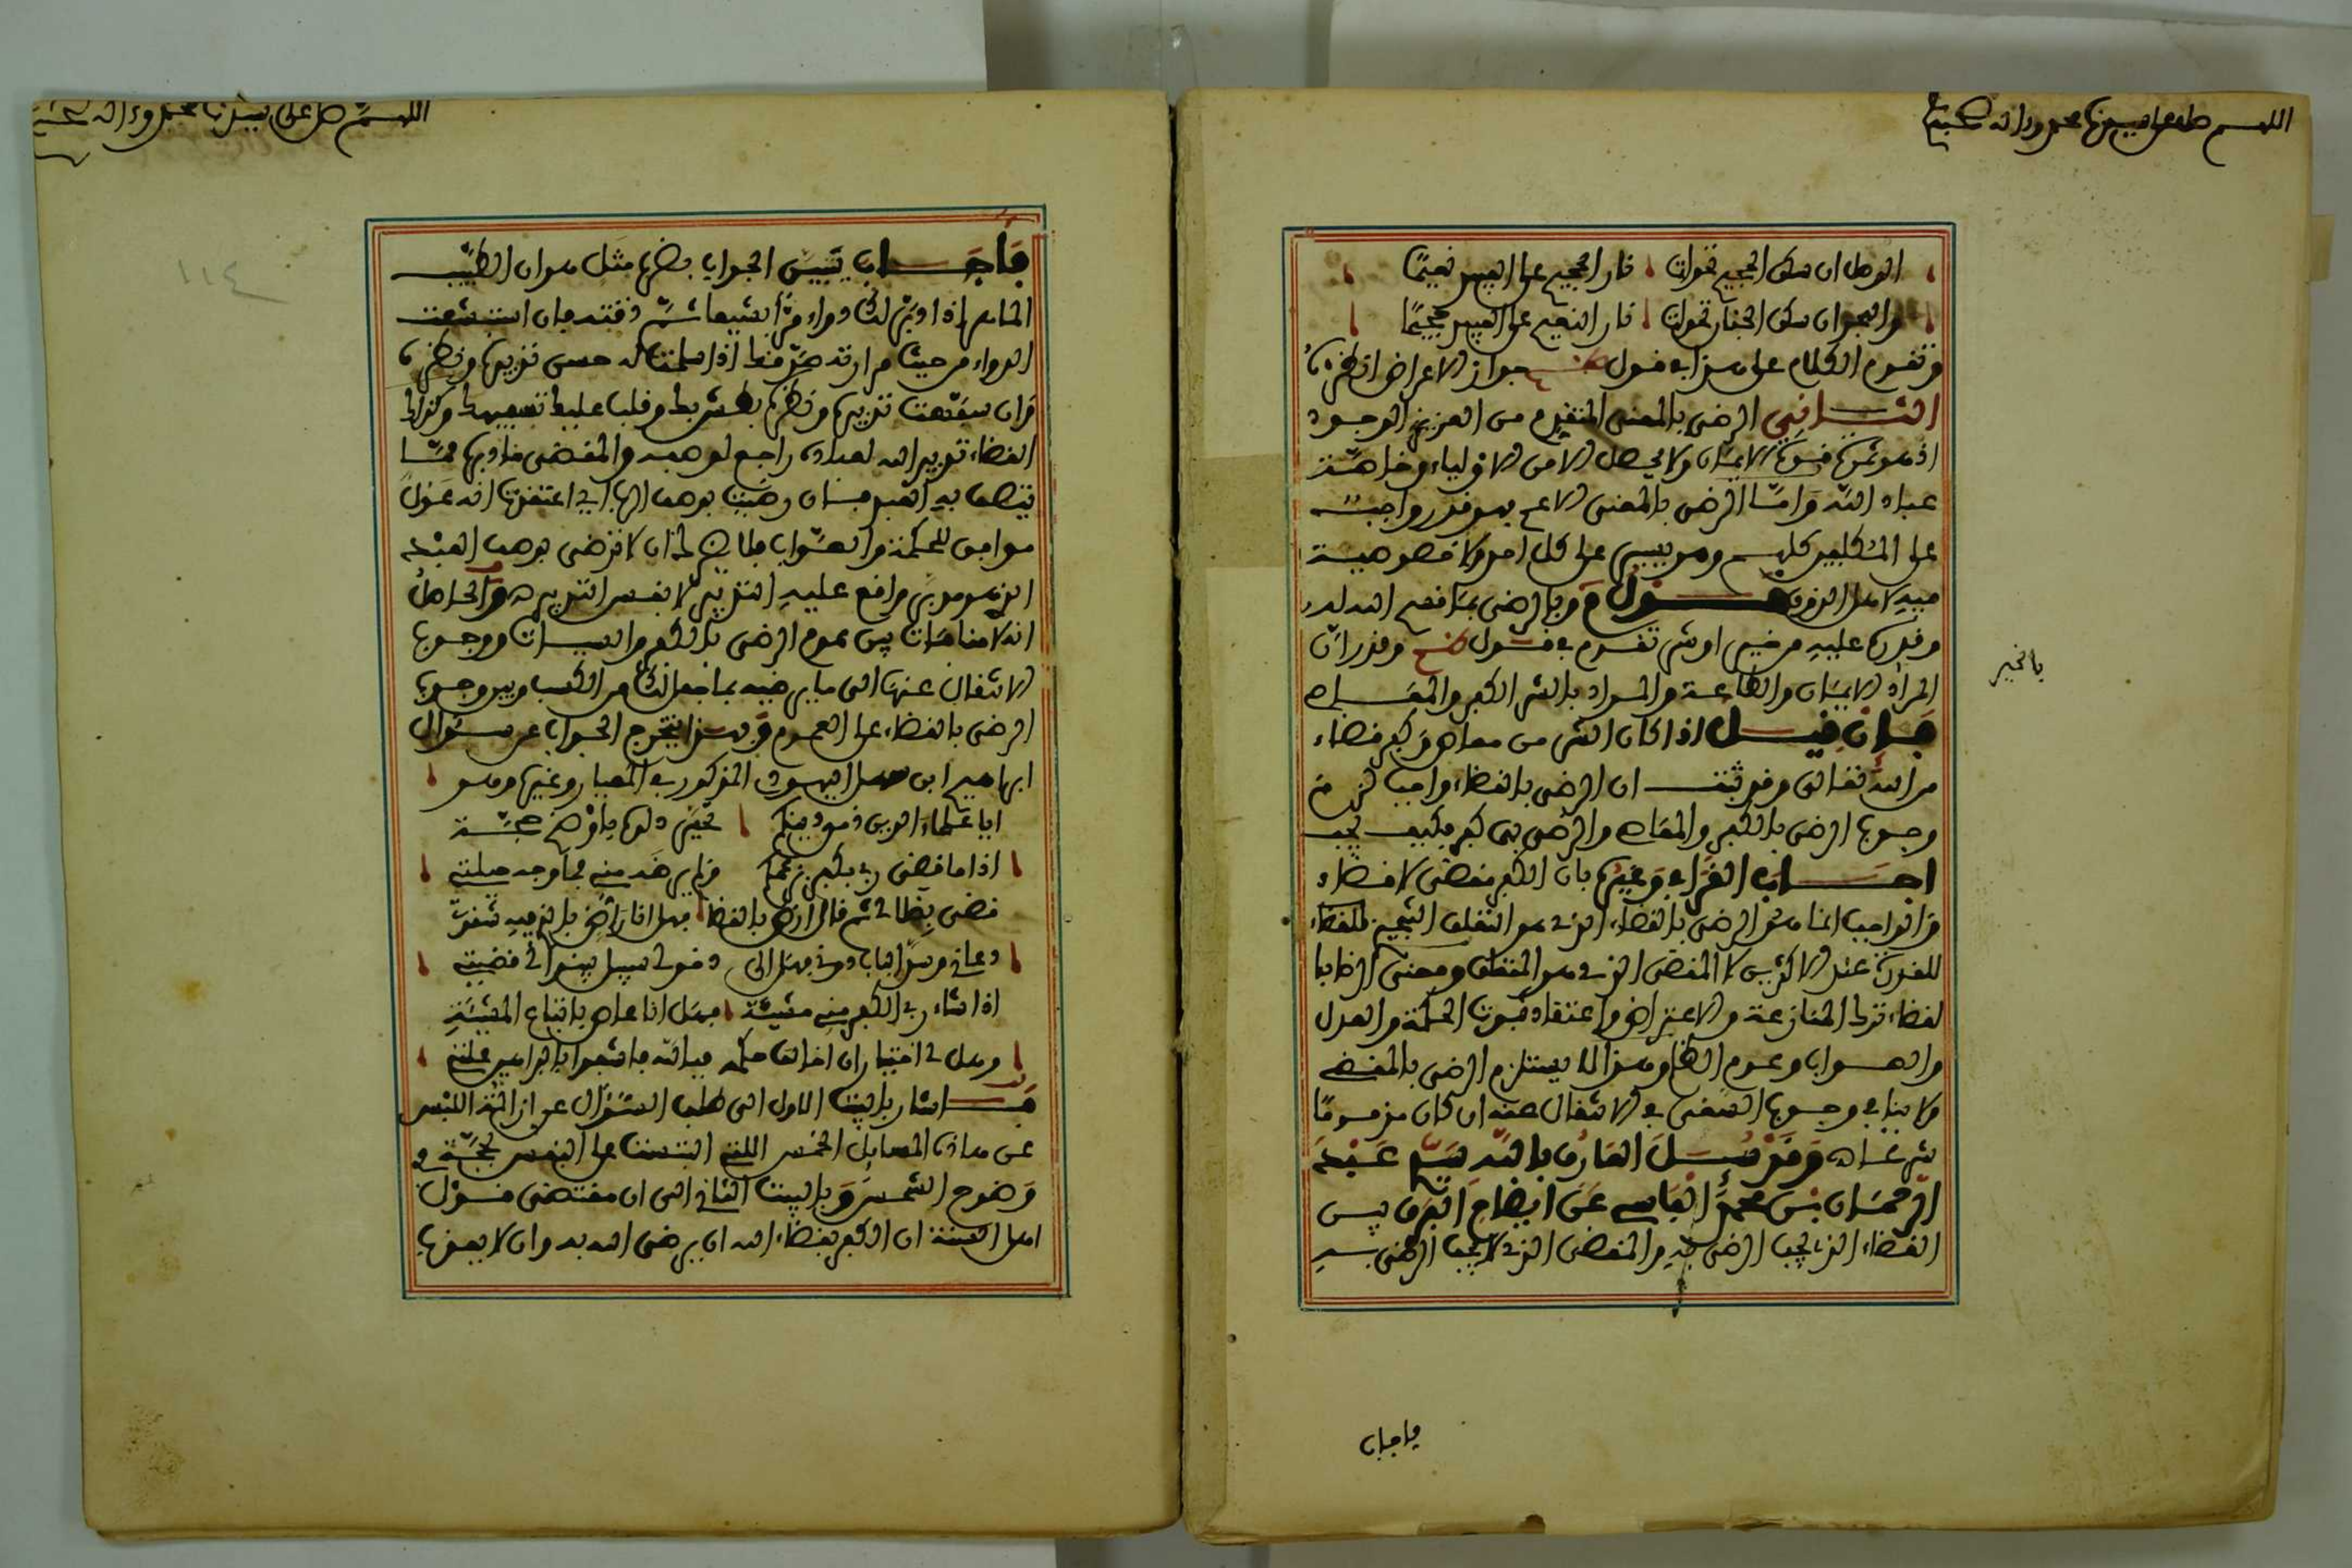 اللهم صل على سيدنا محمد وءاله وصحبه
الوصل ان سكن الجحيم تحولت نار الجحيم على العبيد نعيما
والهجر ان سكن الجنان تحولت نار النعيم على العبيد جحيما
وتقدم الكلام على هذا في قول جواز الاعراض انظره
الثاني الرضى بالمعنى المتقدم من العزيز الوجود
اذ هو ثمرة قوة الايمان ولا يحصل الا من الاولياء وخاصة
عباد الله واما الرضى بالمعنى الاعم فهو قدر واجب
على المكلفين كلهم وهو يسير على كل احد ولا خصوصية
فيه لاهل الذوق قول م وبالرضى بما قضى الله لدى
وقدره عليه من خير او شر تقدم في قول وقدر ان
المراد الايمان والطاعة والمراد بالشر الكفر والمعاصي
فان قيل اذا كان الشر من معاص وكفر قضاء
من الله تعالى وقد ثبت ان الرضى بالقضاء واجب لزم
وجوب الرضى بالكفر والمعاصي والرضى بها كفر فكيف يجب
اجاب القرافي وغيره بان الكفر مقضى لا قضاء
والواجب انما هو الرضى بالقضاء الذي هو التعلق التنجيزي للقضاء
للقدرة عند الاكثرين لا المقضى الذي هو المتعلق ومعنى الرضا با
لقضاء ترك المنازعة والاعتراض واعتقاد ثبوت الحكمة والعدل
والصواب وعدم الظلم وهذا لا يستلزم الرضى بالمقضى
ولا ينافي وجوب السعى في الانتقال عنه ان كان مذموما
شرعا ه وقد سئل العارف بالله سيدي عبد
الرحمان بن محمد الفاسي عن ايضاح الفرق بين
القضاء الذي يجب الرضى به والمقضى الذي لا يجب الرضى به
بالخير
فاجاب
اللهم صل على سيدنا محمد وءاله وصحبه
١١٤
فاجاب يتبين الجواب بضرب مثل هو ان الطبيب
الماهر اذا دبر لك دواء مر بشيعا ثم ذقته فان استبشعت
الدواء من حيث مرارته لم ضر منك اذا سلمت له حسن تدبيره ونظره
وان سفهت تدبيره ونظره بطش بك وقلب عليك تسفيهك وكذلك
القضاء تدبير الله لعباده راجع لوصفه والمقضى ما دبره مما
يتصف به العبد فان رضيت بوصف الرب اي اعتقدت انه عدل
موافق للحكمة والصواب فلا يلزم ان لا ترضى بوصف العبد
الذي هو مدبر واقع عليه التدبير لا بنفس التدبير ه والحاصل
انه لا منافات بين عموم الرضى بالكفر والسيئات ووجوب
الانتقال عنها الى ما يرضيه بما جعل لك من الكسب وبين وجوب
الرضى بالقضاء على العموم وبهذا يتخرج الجواب عن سؤال
ابراهيم ابن سهل اليهودي المذكور في المعيار وغيره وهو
ايا علماء الدين ذمي دينكم تحير دلوه باوضح حجة
اذا ما قضى ربي بكفري بزعمكم ولم يرضه مني فما وجه حيلتي
قضى بضلالي ثم قال ارض بالقضا فهل انا راض بالذي فيه شقوتي
دعاني وسد الباب دوني فهل الى دخولي سبيل بينوا لي قضيتي
اذا شاء ربي الكفر مني مشيئة فهل انا عاص باتباع المشيئة
وهل لي اختيار ان اخالف حكمه فبالله فاشفوا بالبراهين علتي
فاشار بالبيت الاول الى طلب السؤال عن ازالة اللبس
عن هاذه المسايل الخمس التي التبست على النفس بحجة في
وضوح الشمس وبالبيت الثاني الى ان مقتضى قول
اهل السنة ان الكفر بقضاء الله ان يرضى الله به وان لا يعذب